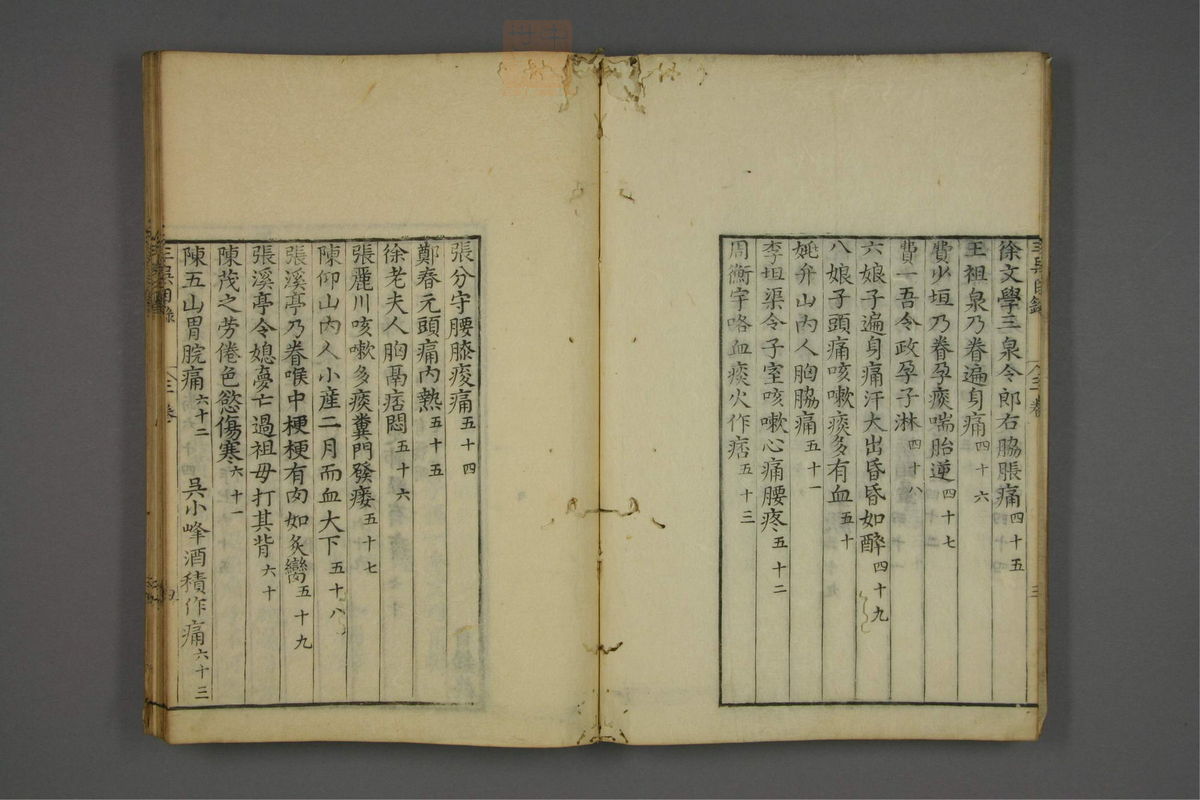 徐文學三泉令郎右脇脹痛四十五
王祖泉乃眷遍身痛四十六
費少垣乃眷孕痰喘胎逆四十七
費一吾令政孕子淋四十八
六娘子遍身痛汗大出昏昏如醉四十九
八娘子頭痛咳嗽痰多有血五十
姚升山內人胸脇痛五十一
李垣渠令子室咳嗽心痛腰疼五十二
周衡宇咯血痰火作痞五十三
三吳目錄 三卷 三
張分守腰膝痠痛五十四
鄭春元頭痛內熱五十五
徐老夫人胸鬲痞悶五十六
張麗川咳嗽多痰糞門發瘘五十七
陳仰山內人小產二月而血大下五十八
張溪亭乃眷喉中梗梗有肉如炙臠五十九
張溪亭令媳夢亡過祖母打其背六十
陳茂之勞倦色慾傷寒六十一
陳五山胃脘痛六十二 吳小峰酒積作痛六十三
三吳目錄 三卷 四